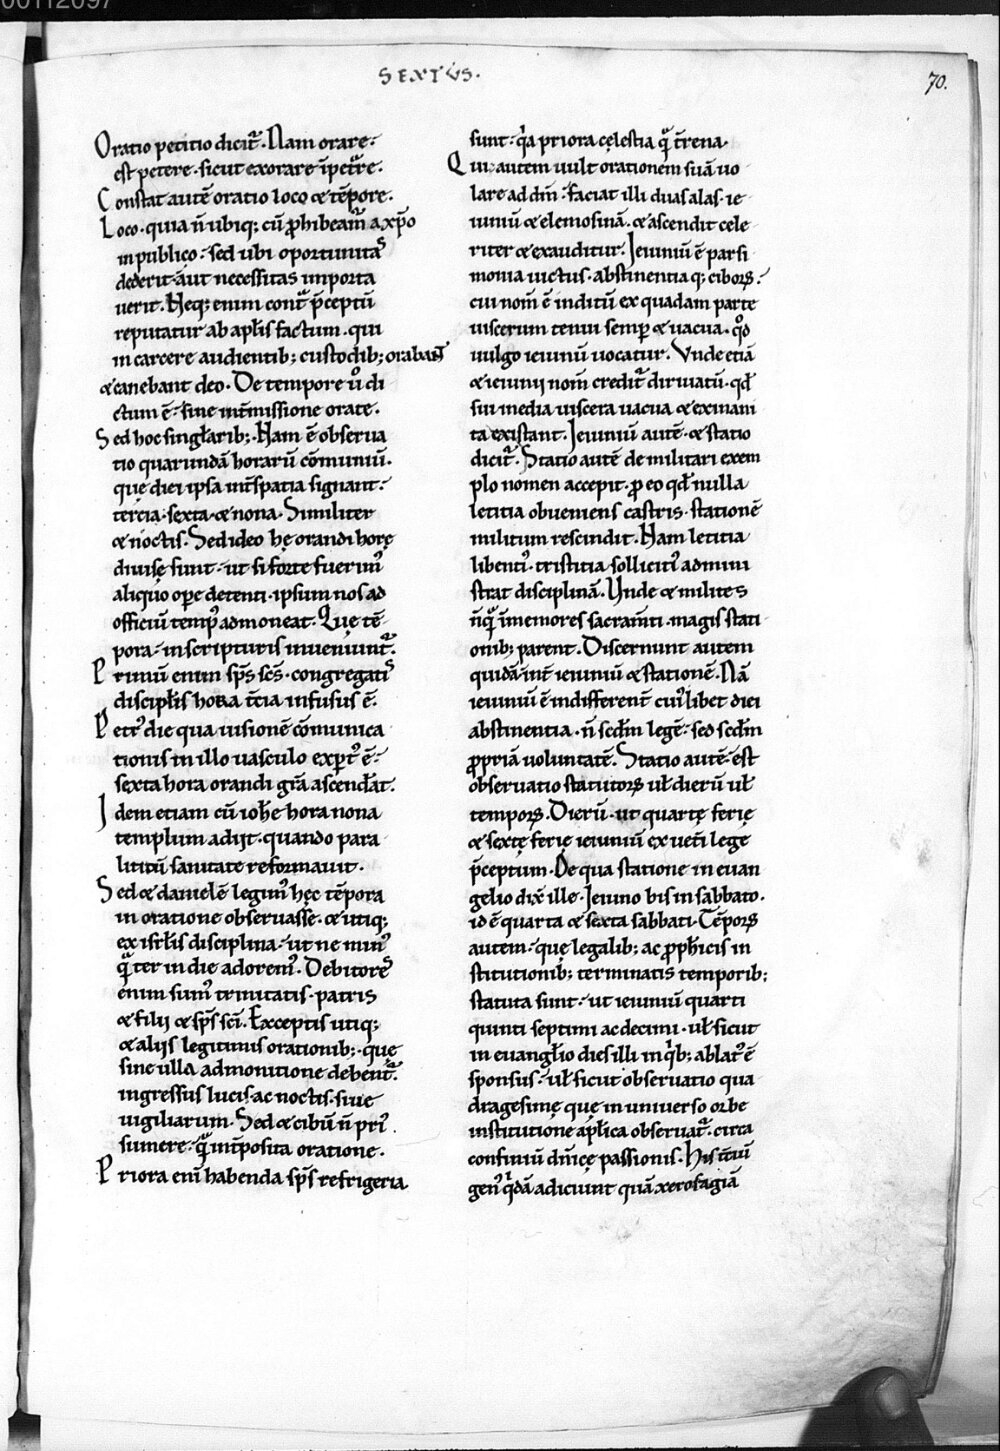 00112097
SEXTVS.
70.
Oratio petitio dicit̄. Nam orare
est petere. sicut exorare īpetr̄e.
Constat autē oratio loco & tēpore.
Loco. quia n̄ ubiq; cū ꝓhibeam̄ a xp̄o
in publico. sed ubi oportunitaˢ
dederit. aut necessitas importa
uerit. Neq; enim cont̄ p̄ceptū
reputatur ab apl̄is factum. qui
in carcere audientib; custodib; orabant̄
& canebant deo. De tempore u̾o di
ctum ē. sine int̄missione orate.
Sed hoc singl̄arib;. Nam ē obserua
tio quarundā horarū cōmuniū.
quę diei ipsa int̄spatia signant.
tercia. sexta. & nona. Similiter
& noctis. Sed ideo hę orandi horę
diuisę sunt. ut si forte fuerimꝰ
aliquo oꝑe detenti. ipsum nos ad
officiū tempꝰ admoneat. Quę tē
pora. in scripturis inueniunt̄.
Primū enim sp̄s sc̄s. congregatiˢ
discipl̄is hora t̄cia infusus ē.
Petrꝰ die qua uisionē cōmunica
tionis in illo uasculo expertꝰ ē.
sexta hora orandi grā ascend̄at.
Idem etiam cū ioh̄e hora nona
templum adijt. quando para
liticū sanitate reformauit.
Sed & danielē legimꝰ hęc tēpora
in oratione obseruasse. & utiq;
ex isrl̄is disciplina. ut ne minꝰ
qͣ ter in die adoremꝰ. Debitoreˢ
enim sumꝰ trinitatis. patris
& filij & sp̄s sc̄i. Exceptis utiq;
& alijs legitimis orationib;. quę
sine ulla admonitione debent̄.
ingressus lucis. ac noctis. siue
uigiliarum. Sed & cibū n̄ priꝰ
sumere. qͣ int̄posita oratione.
Priora eni habenda sp̄s refrigeria
sunt. qͥa priora cęlestia qͣ t̄rena.
Qui autem uult orationem suā uo
lare ad dm̄. faciat illi duas alas. ie
iuniū & elemosinā. & ascendit cele
riter & exauditur. Ieiuniū ē parsi
monia uictus. abstinentia q; ciboꝝ.
cui nom̄ ē inditū ex quadam parte
uiscerum tenui semꝑ & uacua. qͦd
uulgo ieiunū uocatur. Vnde etiā
& ieiunij nom̄ credit̄ diriuatū. qd̄
sui media uiscera uacua & exinani
ta existant. Ieiuniū autē. & statio
dicit̄. Statio autē de militari exem
plo nomen accepit. ꝓ eo qd̄ nulla
letitia obueniens castris. stationē
militum rescindit. Nam letitia
libentiꝰ. tristitia sollicitiꝰ admini
strat disciplinā. Unde & milites
n̄qͣ īmemores sacram̄ti. magis stati
onib; parent. Discernunt autem
quidā int̄ ieiuniū & stationē. Nā
ieiuniū ē indifferent̄ cuiꝰlibet diei
abstinentia. n̄ scd̄m legē. sed scd̄m
ꝓpriā uoluntatē. Statio autē. est
obseruatio statutoꝝ ul̄ dierū ul̄
tempoꝝ. Dierū. ut quartę ferię
& sextę ferię ieiuniū ex uet̄i lege
p̄ceptum. De qua statione in euan
gelio dix̄ ille. Ieiuno bis in sabbato.
id ē quarta & sexta sabbati. Tēpoꝝ
autem. quę legalib; ac ꝓph̄icis in
stitutionib; terminatis temporib;
statuta sunt. ut ieiuniū quarti
quinti septimi ac decimi. ul̄ sicut
in euangl̄io dies illi in qͥb; ablatꝰ ē
sponsus. ul̄ sicut obseruatio qua
dragesimę quę in uniuerso orbe
institutione apl̄ica obseruat̄. circa
confiniū dn̄icę passionis. His t̄tiū
genꝰ qͥdā adiciunt quā xerofagiā